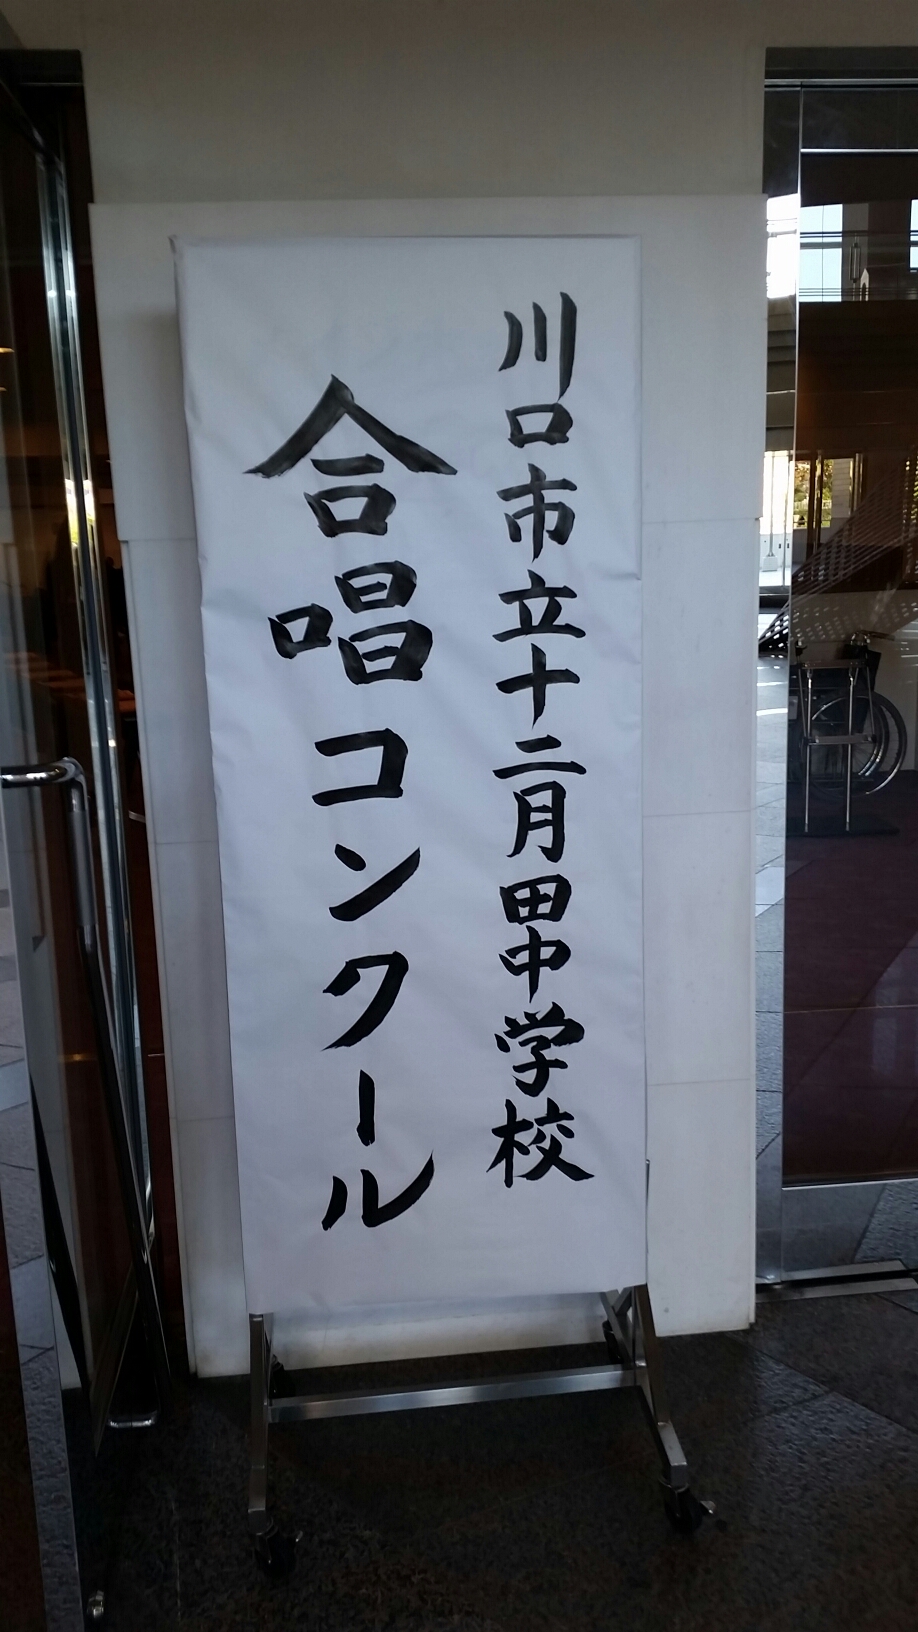 川口市立十二月田中学校
合唱コンクール